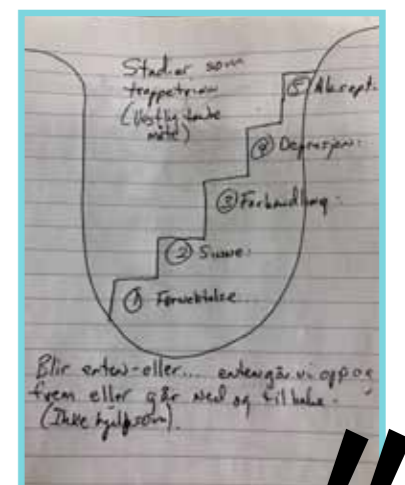 Stadier som
trappetrinn
(Vestlig tenke
måte)
⑤ Aksept.
④ Depresjon.
③ Forhandling.
② Sinne.
① Fornektelse...
Blir enten-eller.... enten går vi opp og
frem eller går ned og tilbake.
(Ikke hjelpsom).